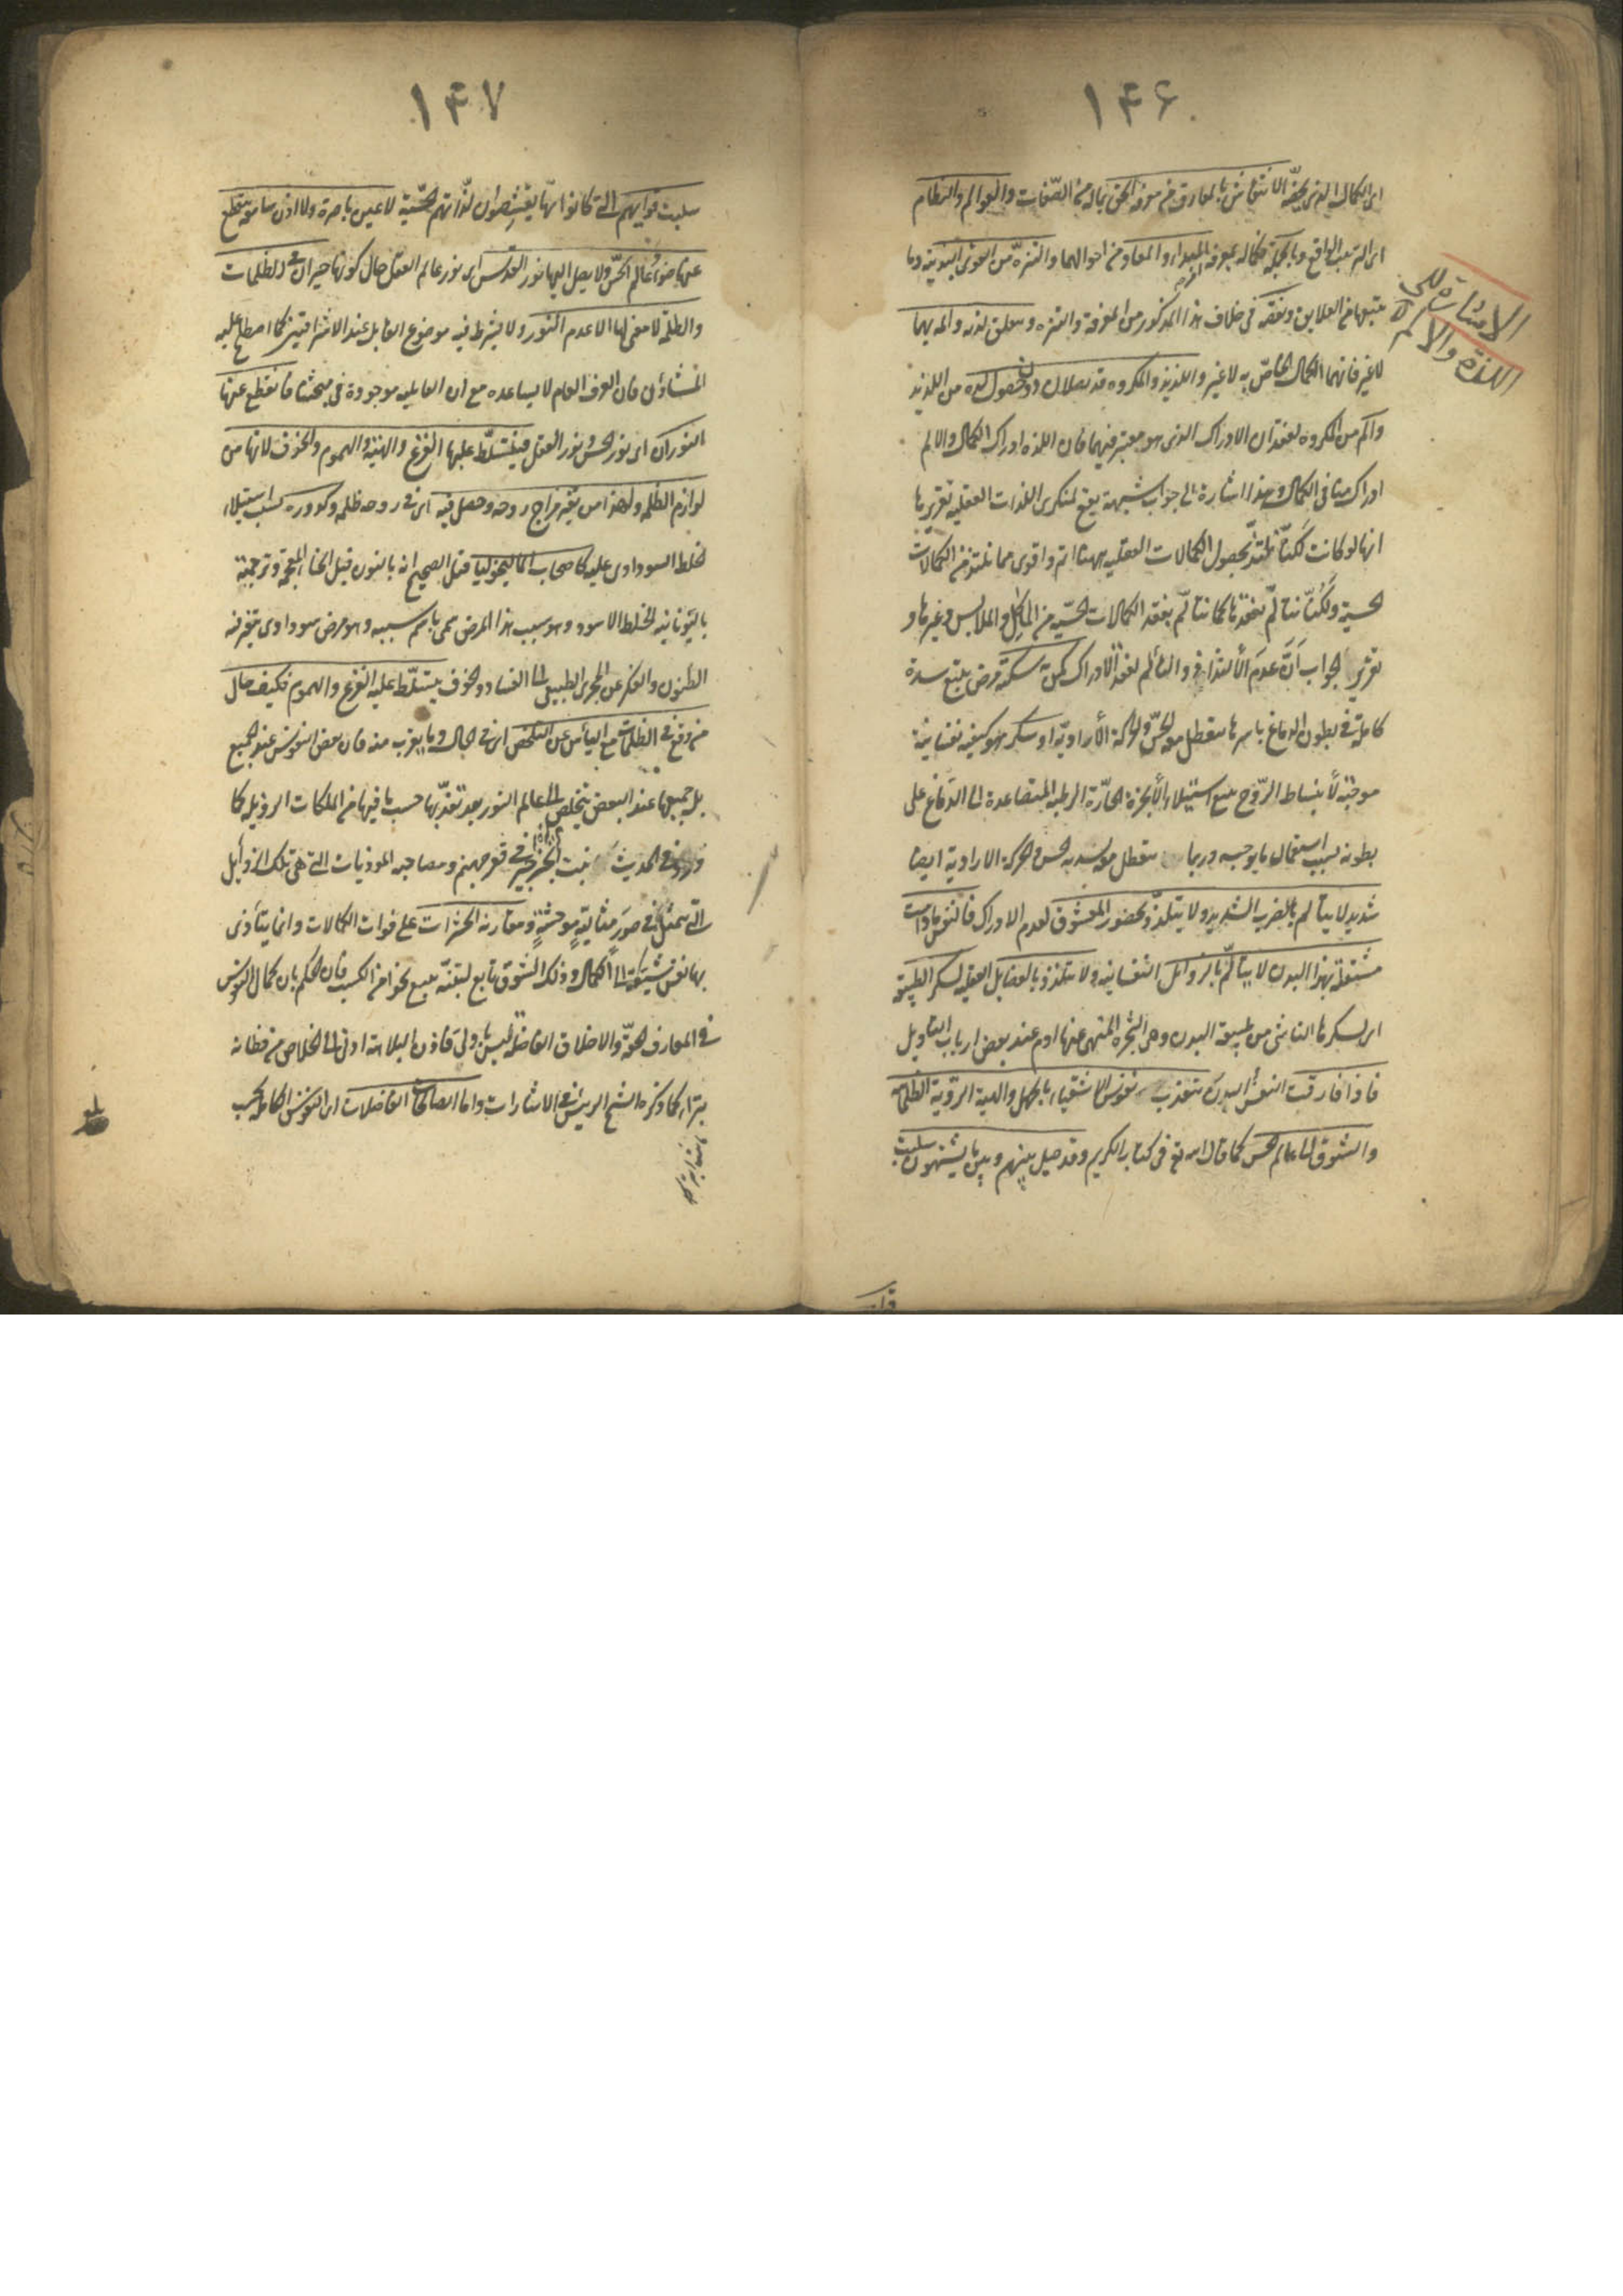 ۱۴۶
ای الکمال الذی یخصّه الانتقاش بالمعارف من معرفة الحق بماله من الصّفات والعوالم والنظام
ای الترتیب الواقع وبالجملة فکماله بمعرفة المبداء والمعاد من احوالهما والتنزّه من القوی البدنیة وما
یتبعها من العلایق ونقصه فی خلاف هذا المذکور من المعرفة والتنزه وتتعلق لذته والمه بهما
لاغیر فانهما الکمال الخاصّ به لاغیر واللذیذ والمکروه قد یصلان دون حصول لذة من اللذیذ
والم من المکروه لفقدان الادراک الذی هو معتبر فیهما فان اللذة ادراک الکمال والالم
ادراک منافی الکمال وهذا اشارة الی جواب شبهة یقع لمنکری اللذات العقلیة تقریرها
انها لو کانت لکنّا نلتذّ بحصول الکمالات العقلیه ههنا اتم واقوی مما نلتذ من الکمالات
الحسیة ولکنّا نتألّم بفقدها کما نتألّم بفقد الکمالات الحسّیة من المآکل والملابس وغیرها و
تقریر الجواب انّ عدم الالتذاذ والتألم لفقد الادراک کمن به سکتة مرض یتبع سدة
کاملة فی بطون الدماغ باسرها یتعطل معه الحسّ والحرکة الأرادیّة او سکر هو کیفیة نفسانیة
موجبة لأنبساط الرّوح یتبع استیلاء الأبخرة الحارّة الرطبة المتصاعدة الی الدّماغ علی
بطونه بسبب استعمال ما یوجبه وربما یتعطل معه لشدته الحس والحرکة الارادیة ایضا
شدید لا یتألم بالضرب الشدید ولا یتلذّذ بحضور المعشوق لعدم الادراک فالنفس مادامت
مشتغلة بهذا البدن لا یتألّم بالرذائل النفسانیه ولا تتلذذ بالفضایل العقلیه لسکر الطبیعة
ای لسکرها الناشی من طبیعة البدن وهی الشجرة المنهی عنها آدم عند بعض ارباب التأویل
فاذا فارقت النفس البدن تتعذب نفوس الاشقیاء بالجهل والهیئة الردّیة الظلمانیه
والشوق الی عالم الحس کما قال الله تع فی کتابه الکریم وقد حیل بینهم وبین ما یشتهون سلبت
الاشارة الی
اللذة والالم
۱۴۷
سلبت قواهم التی کانوا بها یقتنصون لذّاتهم الحسّیة لا عین باصرة ولا اذن سامعة ینقطع
عنها ضوء عالم الحسّ ولا یصل الیها نور القدس ای نور عالم العقل حال کونها حیران فی الظلمات
والظلمة لا معنی لها الا عدم النور ولا یشترط فیه موضوع القابل عند الاشراقیین کما اصطلح علیه
المشاؤن فان العرف العام لا یساعده مع ان القابلیه موجودة فی مبحثنا فانقطع عنها
النوران ای نور الحسّ ونور العقل فیتسلّط علیها الفزع والهیبة والهموم والخوف لانها من
لوازم الظلمة ولهذا من تغیّر مزاج روحه وحصل فیه ای فی روحه ظلمة وکدورة بسبب استیلاء
الخلط السوداوی علیه کاصحاب المالیخولیا قیل الصحیح انه بالنون قبل الخاء المعجمة وترجمته
بالیونانیه الخلط الاسود وهو سبب هذا المرض سمی باسم سببه وهو مرض سوداوی یتغیر فیه
الظنون والفکر عن المجری الطبیعی الی الفساد والخوف یتسلّط علیه الفزع والهموم فکیف حال
من وقع فی الظلمات مع الیأس عن التخلّص ای فی الحال وما یقرب منه فان بعض النفوس عند الجمیع
بل جمیعها عند البعض یتخلص الی عالم النور بعد تعذّبها حسب ما فیها من الملکات الرذیلة کما
ورد فی الحدیث ینبت الجرجیر فی قعر جهنم ومصاحبه الموذیات التی هی تلک الرذایل
التی تمثل فی صور مثالیّة موحشة ومقارنه الحسرات علی فوات الکمالات وانما یتأذی
بها نفس شیّقة الی الکمال وذلک الشوق تابع لتنبّه یتبع نحوا من الکسب فان الحکم بان کمال النفوس
فی المعارف الحقّة والاخلاق الفاضلة لیس باولی فاذن البلاهة ادنی الی الخلاص من فطانة
بتراء کما ذکره الشیخ الرییس فی الاشارات واما الصالحات الفاضلات ای النفوس الکاملة بحسب